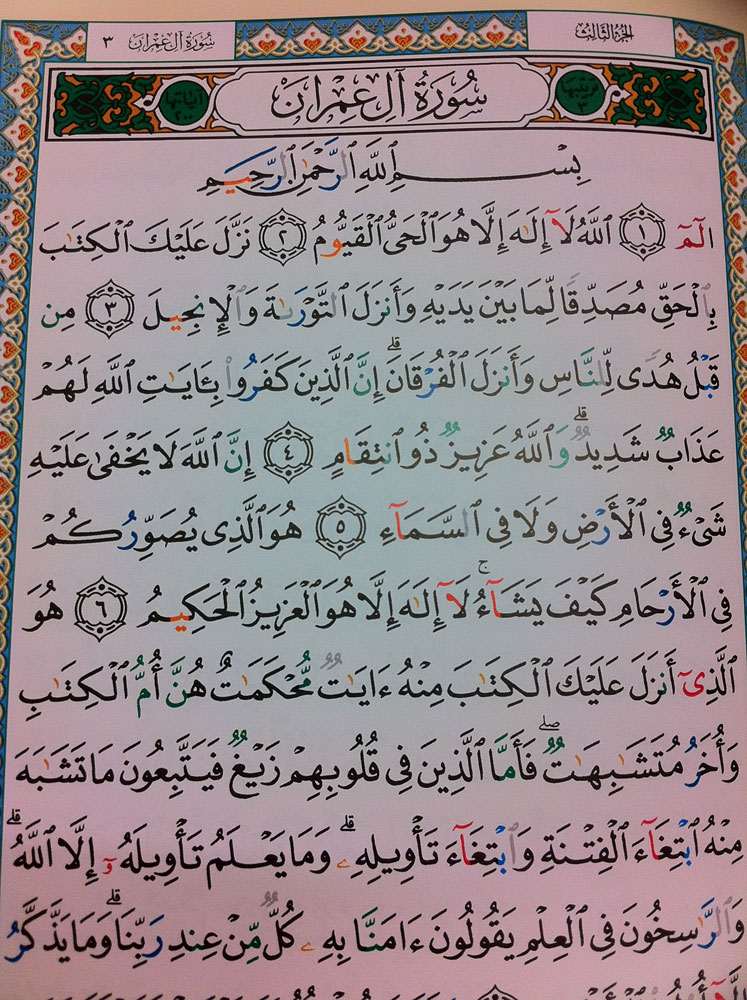 الجزء الثالث
سورة آل عمران ٣
ترتيبها ٣
سورة آل عمران
آياتها ٢٠٠
بِسْمِ ٱللَّهِ ٱلرَّحْمَٰنِ ٱلرَّحِيمِ
الٓمٓ ١ ٱللَّهُ لَآ إِلَٰهَ إِلَّا هُوَ ٱلْحَىُّ ٱلْقَيُّومُ ٢ نَزَّلَ عَلَيْكَ ٱلْكِتَٰبَ
بِٱلْحَقِّ مُصَدِّقًا لِّمَا بَيْنَ يَدَيْهِ وَأَنزَلَ ٱلتَّوْرَىٰةَ وَٱلْإِنجِيلَ ٣ مِن
قَبْلُ هُدًى لِّلنَّاسِ وَأَنزَلَ ٱلْفُرْقَانَ ۗ إِنَّ ٱلَّذِينَ كَفَرُوا۟ بِـَٔايَٰتِ ٱللَّهِ لَهُمْ
عَذَابٌ شَدِيدٌ ۗ وَٱللَّهُ عَزِيزٌ ذُو ٱنتِقَامٍ ٤ إِنَّ ٱللَّهَ لَا يَخْفَىٰ عَلَيْهِ
شَىْءٌ فِى ٱلْأَرْضِ وَلَا فِى ٱلسَّمَآءِ ٥ هُوَ ٱلَّذِى يُصَوِّرُكُمْ
فِى ٱلْأَرْحَامِ كَيْفَ يَشَآءُ ۚ لَآ إِلَٰهَ إِلَّا هُوَ ٱلْعَزِيزُ ٱلْحَكِيمُ ٦ هُوَ
ٱلَّذِىٓ أَنزَلَ عَلَيْكَ ٱلْكِتَٰبَ مِنْهُ ءَايَٰتٌ مُّحْكَمَٰتٌ هُنَّ أُمُّ ٱلْكِتَٰبِ
وَأُخَرُ مُتَشَٰبِهَٰتٌ ۖ فَأَمَّا ٱلَّذِينَ فِى قُلُوبِهِمْ زَيْغٌ فَيَتَّبِعُونَ مَا تَشَٰبَهَ
مِنْهُ ٱبْتِغَآءَ ٱلْفِتْنَةِ وَٱبْتِغَآءَ تَأْوِيلِهِۦ ۗ وَمَا يَعْلَمُ تَأْوِيلَهُۥٓ إِلَّا ٱللَّهُ ۗ
وَٱلرَّٰسِخُونَ فِى ٱلْعِلْمِ يَقُولُونَ ءَامَنَّا بِهِۦ كُلٌّ مِّنْ عِندِ رَبِّنَا ۗ وَمَا يَذَّكَّرُ